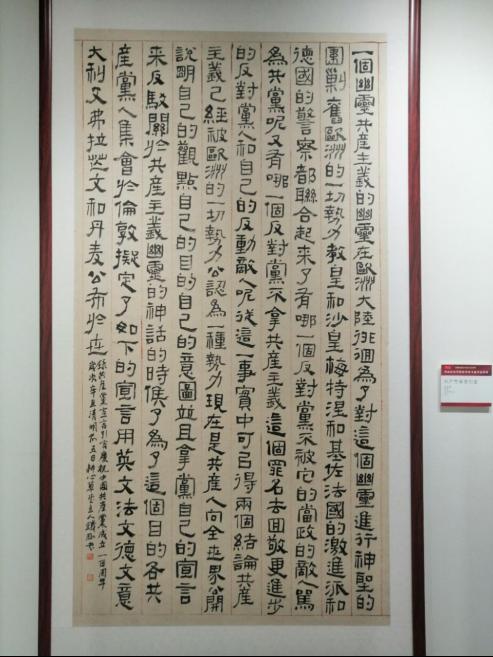 一個幽靈共産主義的幽靈在歐洲大陸徘徊為了對這個幽靈進行神聖的
圍剿舊歐洲的一切勢力教皇和沙皇梅特涅和基佐法國的激進派和
德國的警察都聯合起來了有哪一個反對黨不被它的當政的敵人罵
為共黨呢又有哪一個反對黨不拿共産主義這個罪名去回敬更進步
的反對黨人和自己的反動敵人呢從這一事實中可以得兩個結論共産
主義已經被歐洲的一切勢力公認為一種勢力現在是共産人向全世界公開
說明自己的觀點自己的目的自己的意圖並且拿黨自己的宣言
來反駁關於共産主義幽靈的神話的時候了為了這個目的各共
産黨人集會於倫敦擬定了如下的宣言用英文法文德文意
大利文弗拉芒文和丹麥公布於世
錄共産黨宣言引言慶祝中國共産黨成立一百周年
歲次辛丑清明五日耕心草堂主人